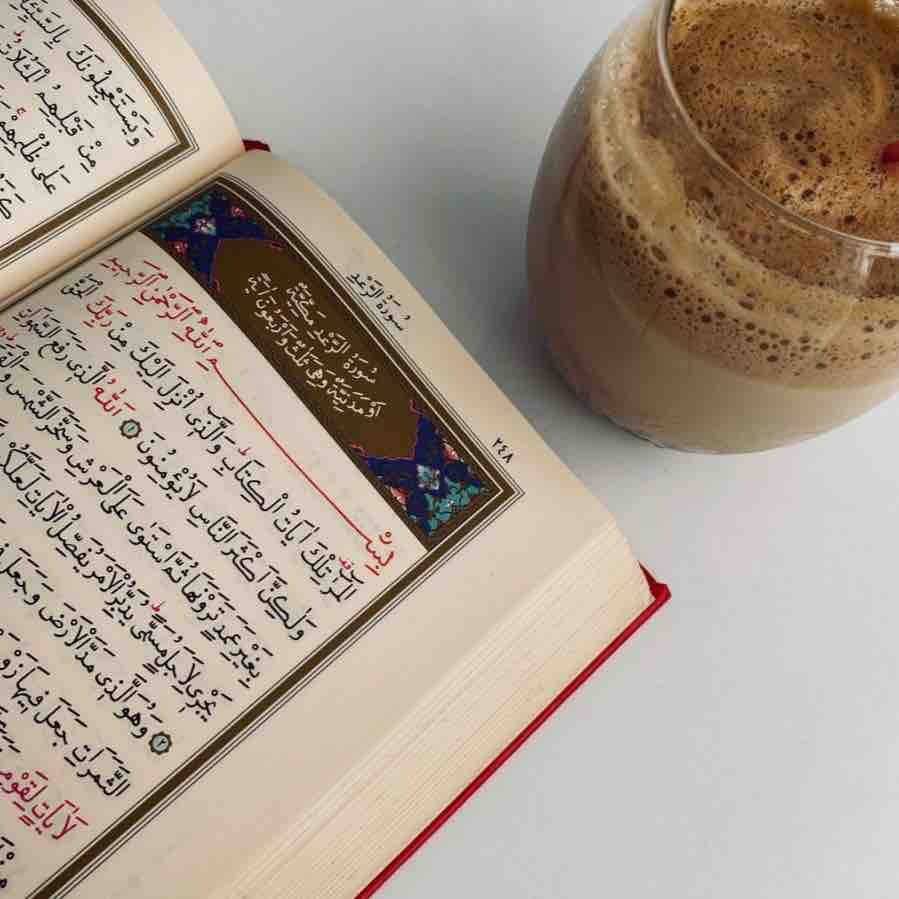 وَيَسْتَعْجِلُونَكَ بِالسَّيِّئَةِ
مِنْ قَبْلِهِمُ الْمَثُلَاتُ
عَلٰى ظُلْمِهِمْ
سُورَةُ الرَّعْدِ
٢٤٨
سُورَةُ الرَّعْدِ مَكِّيَّةٌ
اَوْ مَدَنِيَّةٌ وَهِيَ ثَلٰثٌ وَاَرْبَعُونَ اٰيَةً
بِسْمِ اللّٰهِ الرَّحْمٰنِ الرَّحِيمِ
الٓمٓرٰ تِلْكَ اٰيَاتُ الْكِتَابِ وَالَّذِٓى اُنْزِلَ اِلَيْكَ مِنْ رَبِّكَ الْحَقُّ
وَلٰكِنَّ اَكْثَرَ النَّاسِ لَا يُؤْمِنُونَ ١ اَللّٰهُ الَّذِى رَفَعَ السَّمٰوَاتِ
بِغَيْرِ عَمَدٍ تَرَوْنَهَا ثُمَّ اسْتَوٰى عَلَى الْعَرْشِ وَسَخَّرَ الشَّمْسَ وَالْقَمَرَ
يَجْرِى لِاَجَلٍ مُسَمًّى يُدَبِّرُ الْاَمْرَ يُفَصِّلُ الْاٰيَاتِ لَعَلَّكُمْ
٢ وَهُوَ الَّذِى مَدَّ الْاَرْضَ وَجَعَلَ
الثَّمَرَاتِ جَعَلَ فِيهَا
لَاٰيَاتٍ لِقَوْمٍ